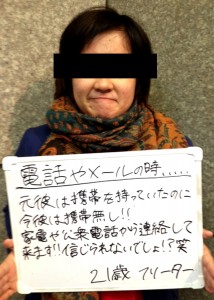 電話やメールの時.....
元彼は携帯を持っていたのに
今彼は携帯無し!!
家電や公衆電話から連絡して
来ます!!信じられないでしょ!?笑
21歳 フリーター